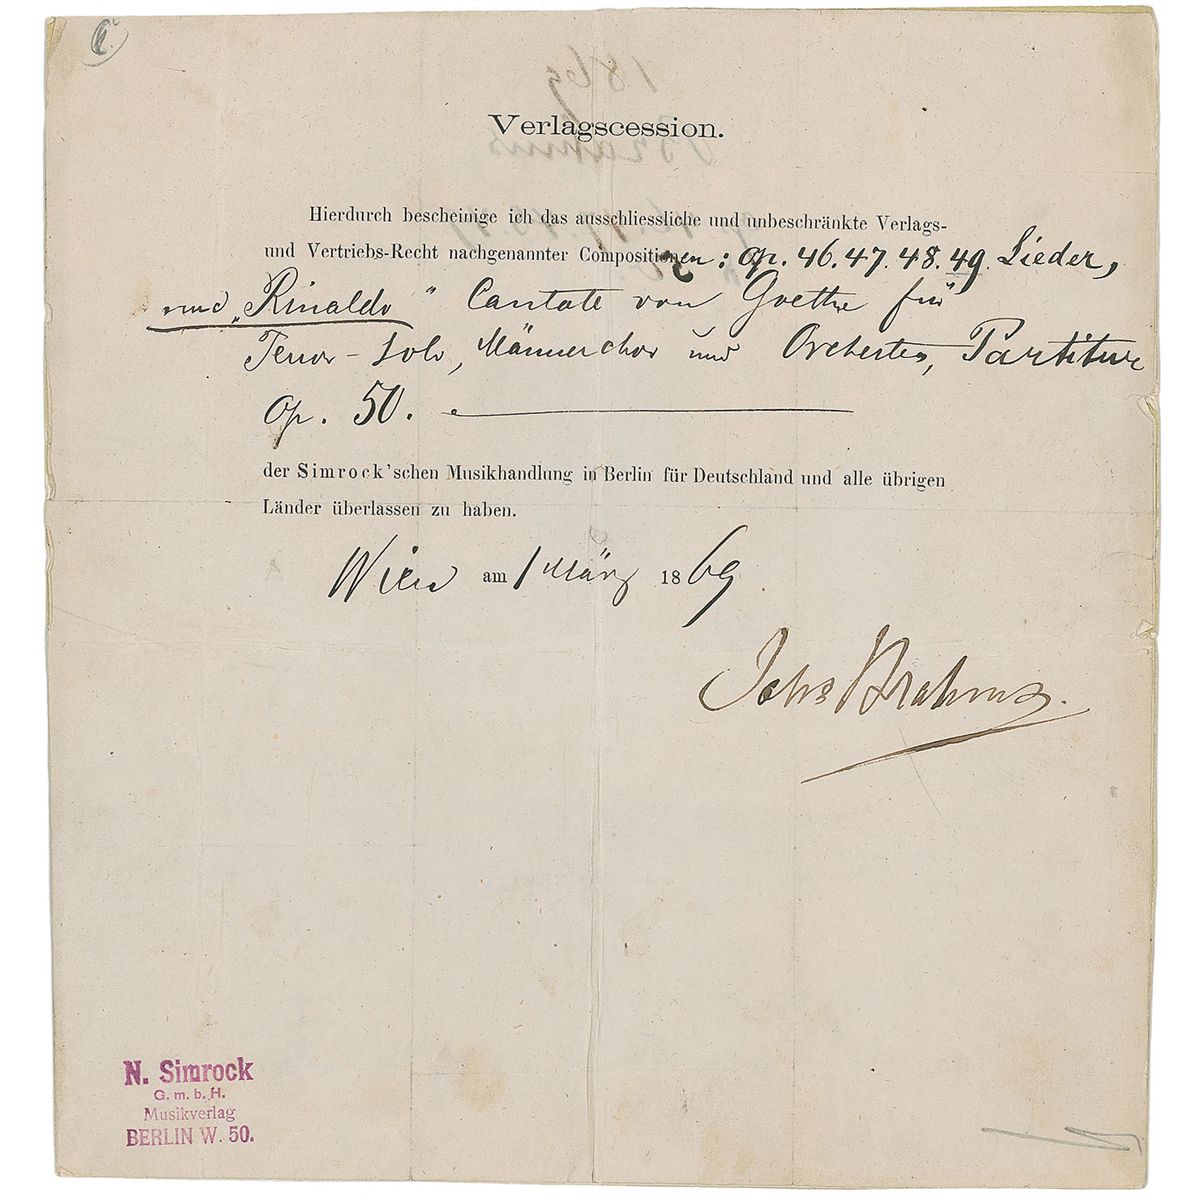 1869
Verlagscession.
Brahms
Hierdurch bescheinige ich das ausschliessliche und unbeschränkte Verlags-
und Vertriebs-Recht nachgenannter Compositionen: Op. 46. 47. 48. 49. Lieder,
und „Rinaldo“ Cantate von Goethe für
Tenor-Solo, Männerchor und Orchester, Partitur
Op. 50.
der Simrock'schen Musikhandlung in Berlin für Deutschland und alle übrigen
Länder überlassen zu haben.
Wien am 1 März 1869
Johs Brahms.
N. Simrock
G. m. b. H.
Musikverlag
BERLIN W. 50.